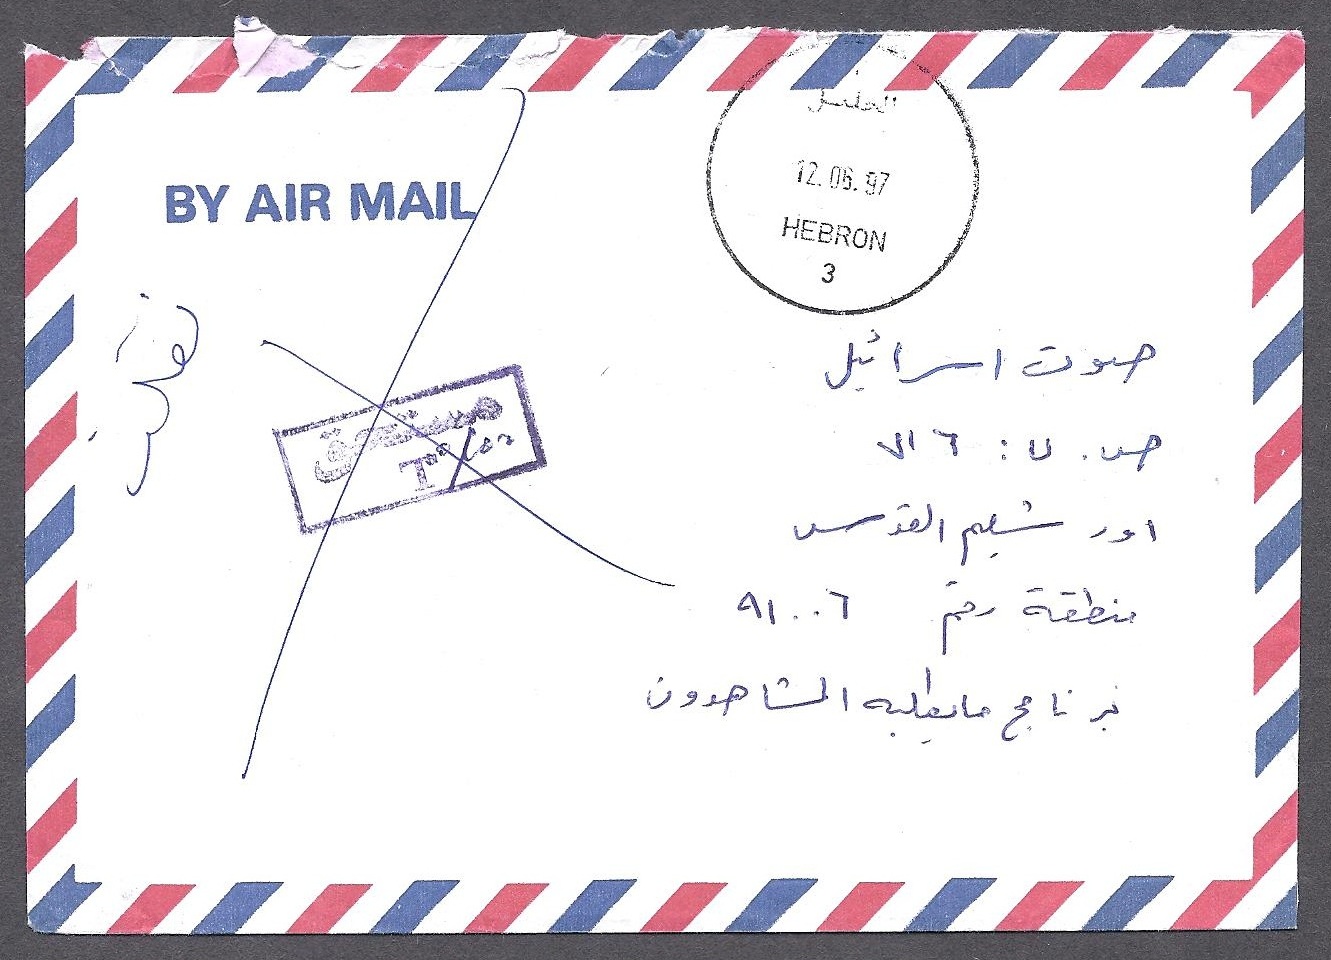 الخليل
12.06.97
HEBRON
3
BY AIR MAIL
صوت اسرائيل
ص. ب: ٧١٦
اورشليم القدس
منطقة رقم ٩١٠٠٦
برنامج ما يطلبه المشاهدون
مستحق
T